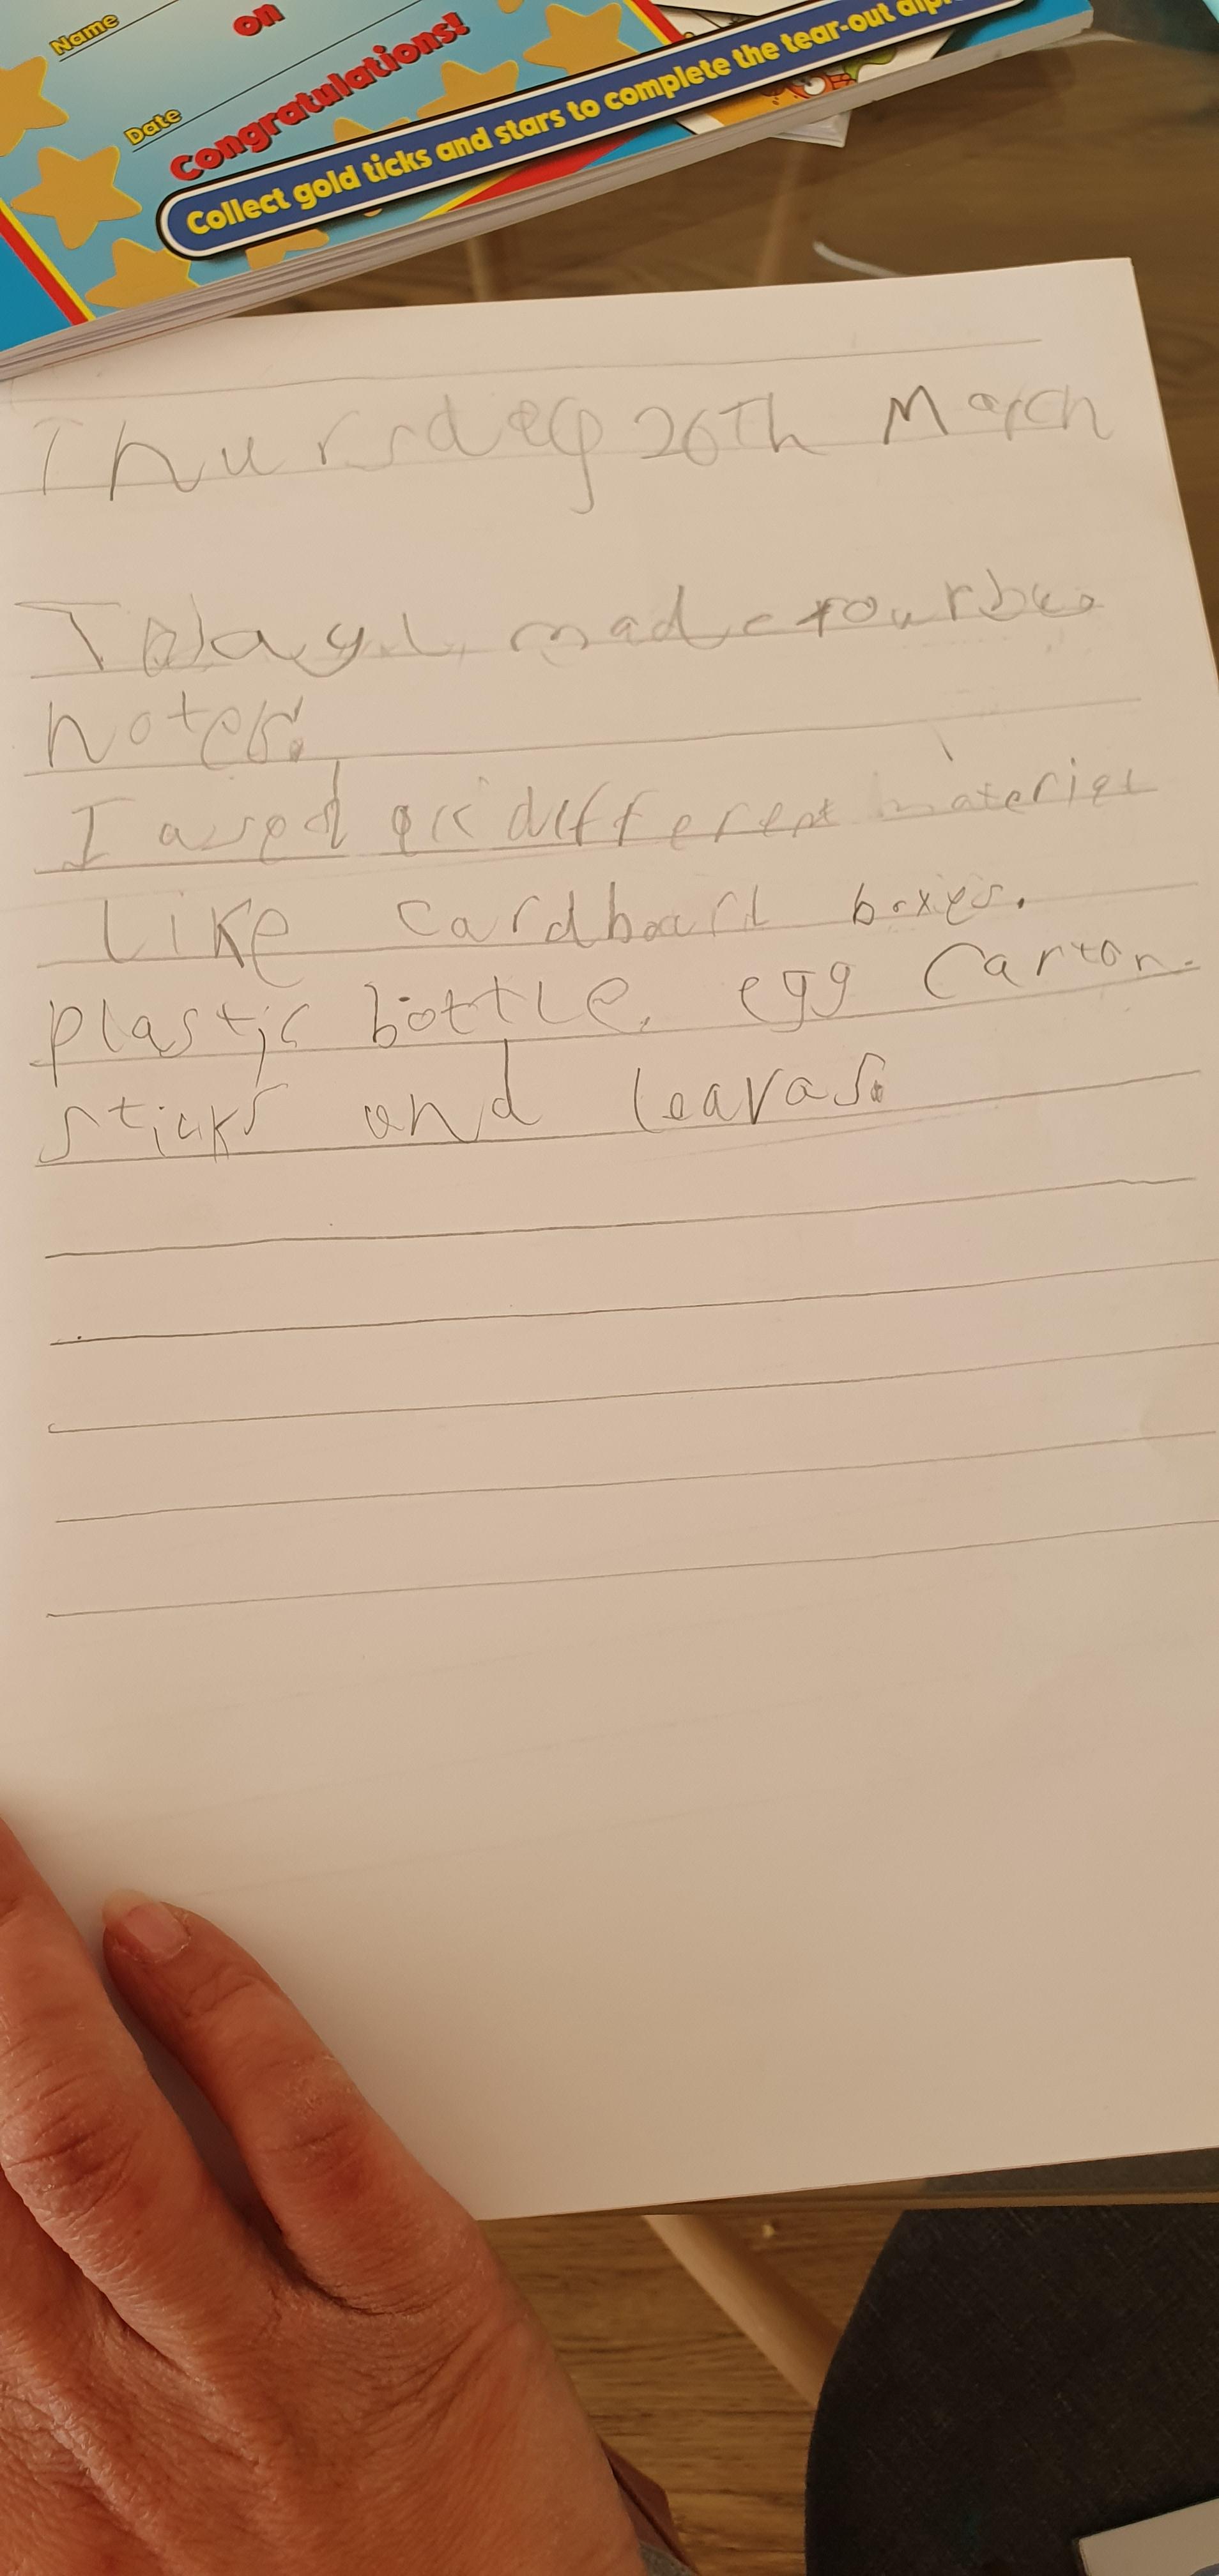 Name
on
Date
Congratulations!
Collect gold ticks and stars to complete the tear-out
Thursday 26Th March
Today I made
hotel.
I used different material
Like cardboard boxes.
plastic bottle, egg Carton.
sticks and leavas.